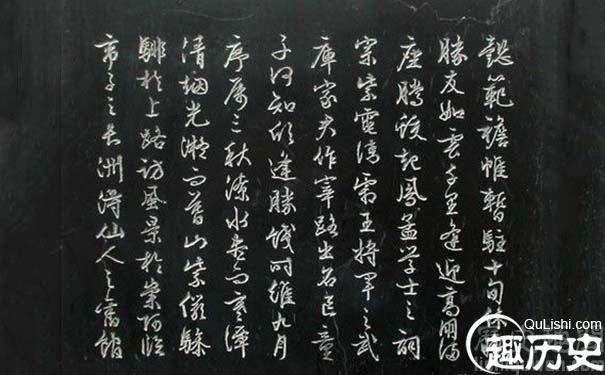 懿範襜帷暫駐十旬休
勝友如雲千里逢迎高朋滿
座騰蛟起鳳孟學士之詞
宗紫電清霜王將軍之武
庫家君作宰路出名區童
子何知躬逢勝餞時維九月
序屬三秋潦水盡而寒潭
清烟光凝而暮山紫儼驂
騑於上路訪風景於崇阿臨
帝子之長洲得仙人之舊館
QuLishi.com
趣历史